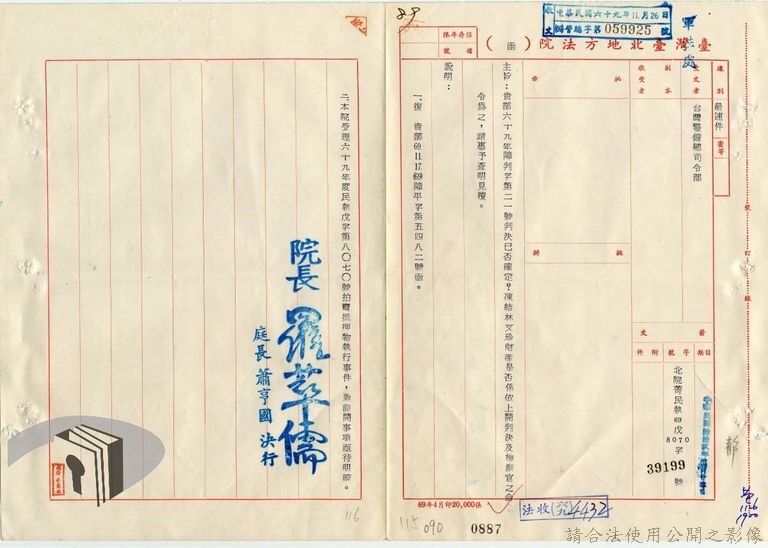 收文
中華民國六十九年11月26日
障警總字第059925號
軍法處
臺灣臺北地方法院（函）
保存年限
檔號
速別
最速件
密等
受文者
台灣警備總司令部
副本
收受者
批示
擬辦
發文
日期
字號
附件
北院菁民執69戊8070字
39199號
主旨：貴部六十九年障判字第二一號判決已否確定？凍結林文珍財產是否係依上開判決及檢察官之命
令為之，請惠予查明見覆。
說明：
一、復 貴部69.11.17.(69)障平字第五四八二號函。
二、本院受理六十九年度民執戊字第八〇七〇號拍賣抵押物執行事件，
院長 羅萃儒
庭長 蕭亨國 決行
69年4月印20,000張
法收(六)4432
115
090
0887
116
請合法使用公開之影像